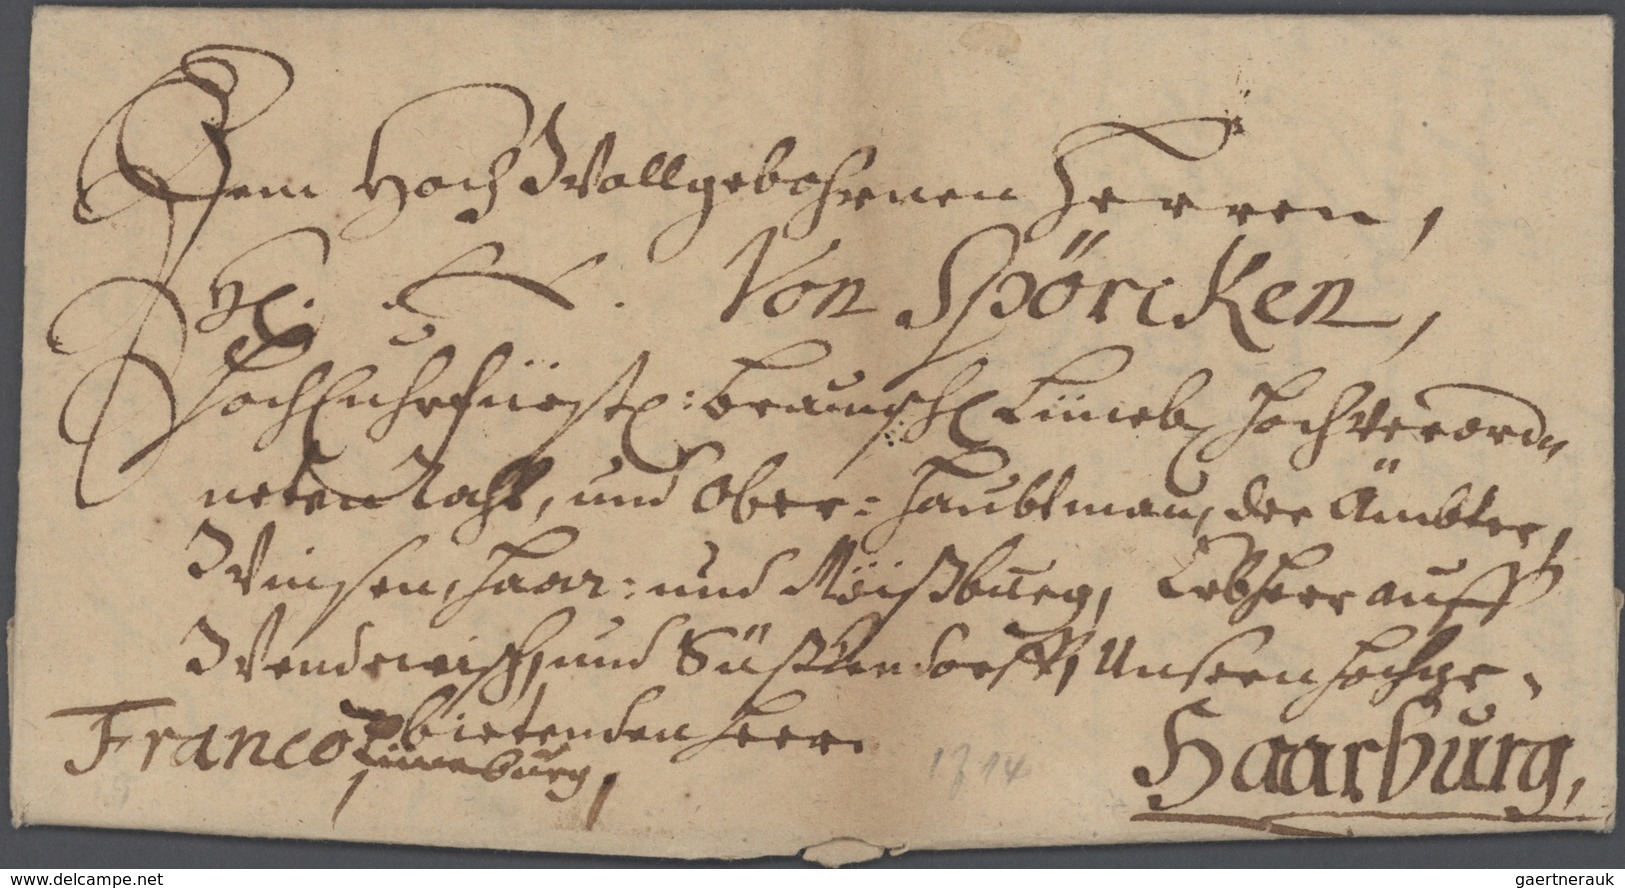 Dem Hoch Wollgebohrnen Herren,
H. Von Spörcken,
HochChurfürstl: braunschl Lüneb. Hochverord„
neten Raht, und Ober= Haubtman, der Ämbter,
Winsen, Haar= und Möißburg, Erbherr auff
Wendewisch, und Süstendorff, Unsern hochge=
bietenden Herr.
Franco Lüneburg,
1714
Haarburg,
www.delcampe.net
gaertnerauk